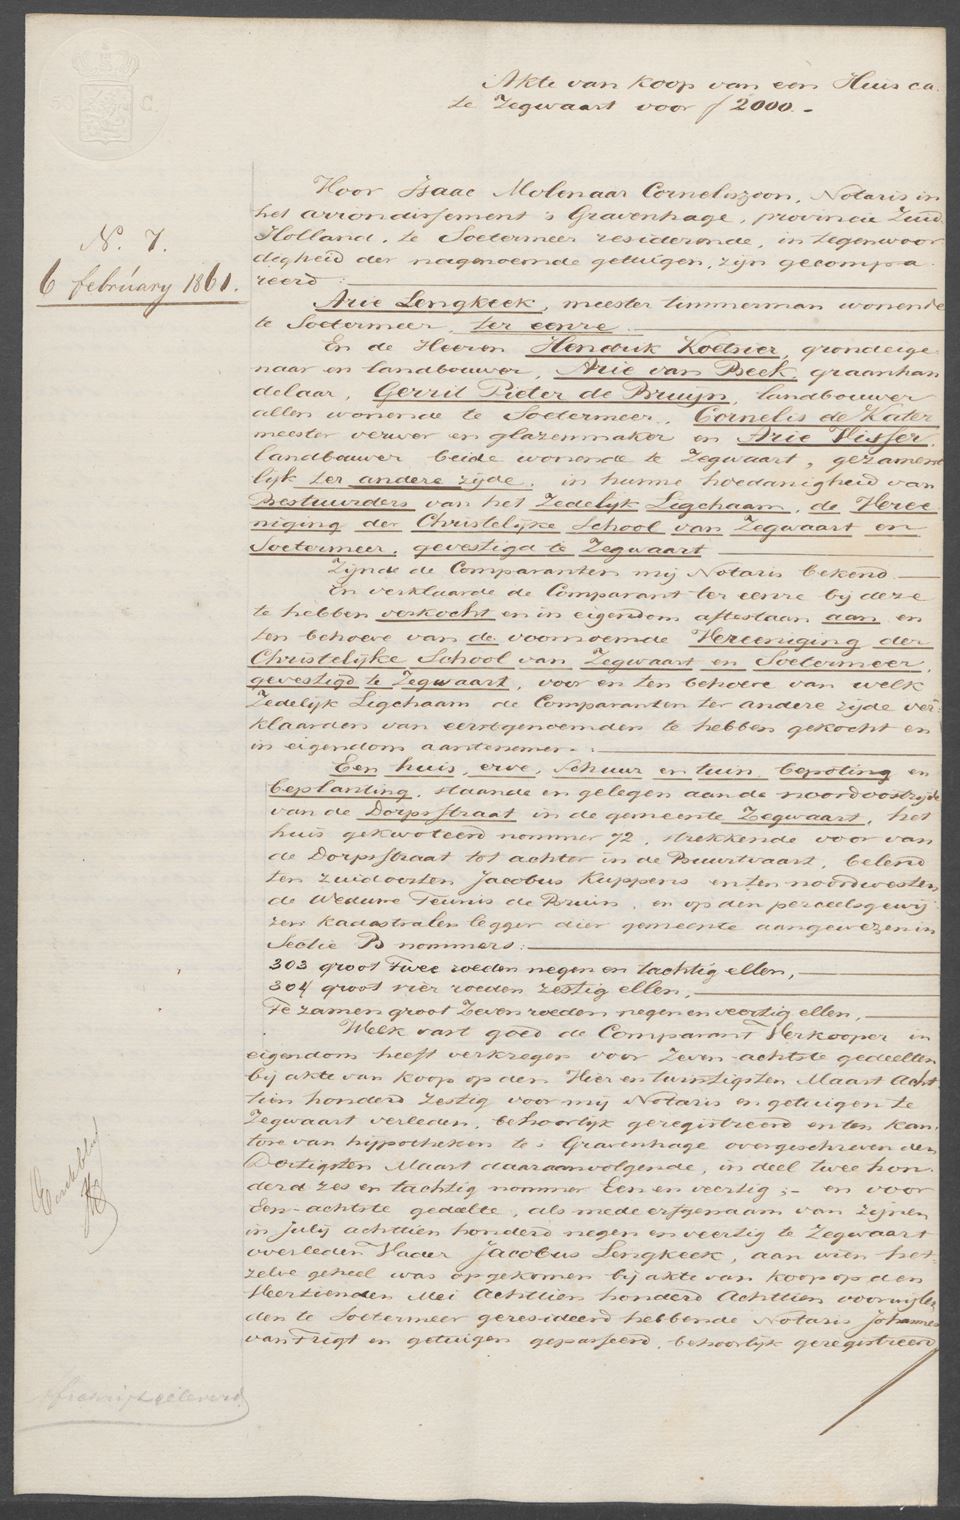 Akte van koop van een Huis ca.
te Zegwaart voor ƒ 2000.-
50 C.
N. 7.
6 february 1861.
Voor Isaac Molenaar Corneliszoon, Notaris in
het arrondissement 's Gravenhage, provincie Zuid
Holland, te Soetermeer residerende, in tegenwoor
digheid der nagenoemde getuigen, zijn gecompa
reerd:
Arie Lengkeek, meester timmerman wonende
te Soetermeer, ter eenre
En de Heeren Hendrik Koetsier, grondeige
naar en landbouwer, Arie van Beek, graanhan
delaar, Gerrit Pieter de Bruijn, landbouwer
allen wonende te Soetermeer, Cornelis de Kater
meester verwer en glazenmaker en Arie Visser,
landbouwer beide wonende te Zegwaart, gezament
lijk ter andere zijde, in hunne hoedanigheid van
Bestuurders van het Zedelijk Ligchaam, de Veree
niging der Christelijke School van Zegwaart en
Soetermeer, gevestigd te Zegwaart
Zijnde de Comparanten mij Notaris bekend
En verklaarde de Comparant ter eenre bij deze
te hebben verkocht en in eigendom afteslaan aan en
ten behoeve van de voornoemde Vereeniging der
Christelijke School van Zegwaart en Soetermeer,
gevestigd te Zegwaart, voor en ten behoeve van welk
Zedelijk Ligchaam de Comparanten ter andere zijde ver
klaarden van eerstgenoemden te hebben gekocht en
in eigendom aantenemen:
Een huis, erve, schuur en tuin, bepoting en
beplanting, staande en gelegen aan de noordoostzijde
van de Dorpsstraat in de gemeente Zegwaart, het
huis gekwoteerd nommer 72, strekkende voor van
de Dorpsstraat tot achter in de Buurtvaart, belend
ten zuidoosten Jacobus Kuppens en ten noordwesten
de Weduwe Teunis de Bruin, en op den perceelsgewij
zen kadastralen legger dier gemeente aangewezen in
Sectie B nommers:
303 groot Twee roeden negen en tachtig ellen,
304 groot vier roeden zestig ellen,
Te zamen groot Zeven roeden negen en veertig ellen,
Welk vast goed de Comparant Verkooper in
eigendom heeft verkregen voor zeven-achtste gedeelten
bij akte van koop op den Vier en twintigsten Maart Acht
tien honderd zestig voor mij Notaris en getuigen te
Zegwaart verleden, behoorlijk geregistreerd en ten kan
tore van hypotheken te 's Gravenhage overgeschreven den
Dertigsten Maart daaraanvolgende, in deel twee hon
derd zes en tachtig nommer Een en veertig;- en voor
Een-achtste gedeelte, als mede erfgenaam van zijnen
in Julij achttien honderd negen en veertig te Zegwaart
overleden Vader Jacobus Lengkeek, aan wien het
zelve geheel was opgekomen bij akte van koop op den
Veertienden Mei Achttien honderd Achttien voor wijlen
den te Soetermeer geresideerd hebbende Notaris Johannes
van Trigt en getuigen gepasseerd, behoorlijk geregistreerd
Afschrift geleverd